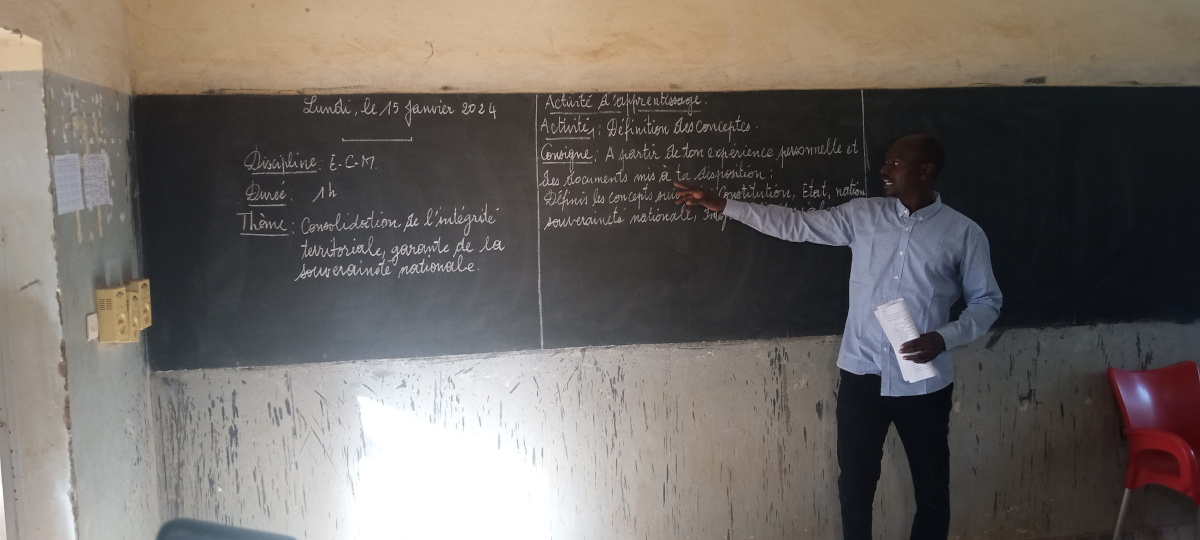 Lundi, le 15 Janvier 2024
Discipline : E-C-M.
Dureé : 1h
Thème : Consolidation de l'intégrité
territoriale, garante de la
souveraineté nationale.
Activité d'apprentissage.
Activité 1 : Définition des conceptes.
Consigne : A partir de ton expérience personnelle et
des documents mis à ta disposition :
Définis les concepts : Constitution, Etat, nation
souveraineté nationale,